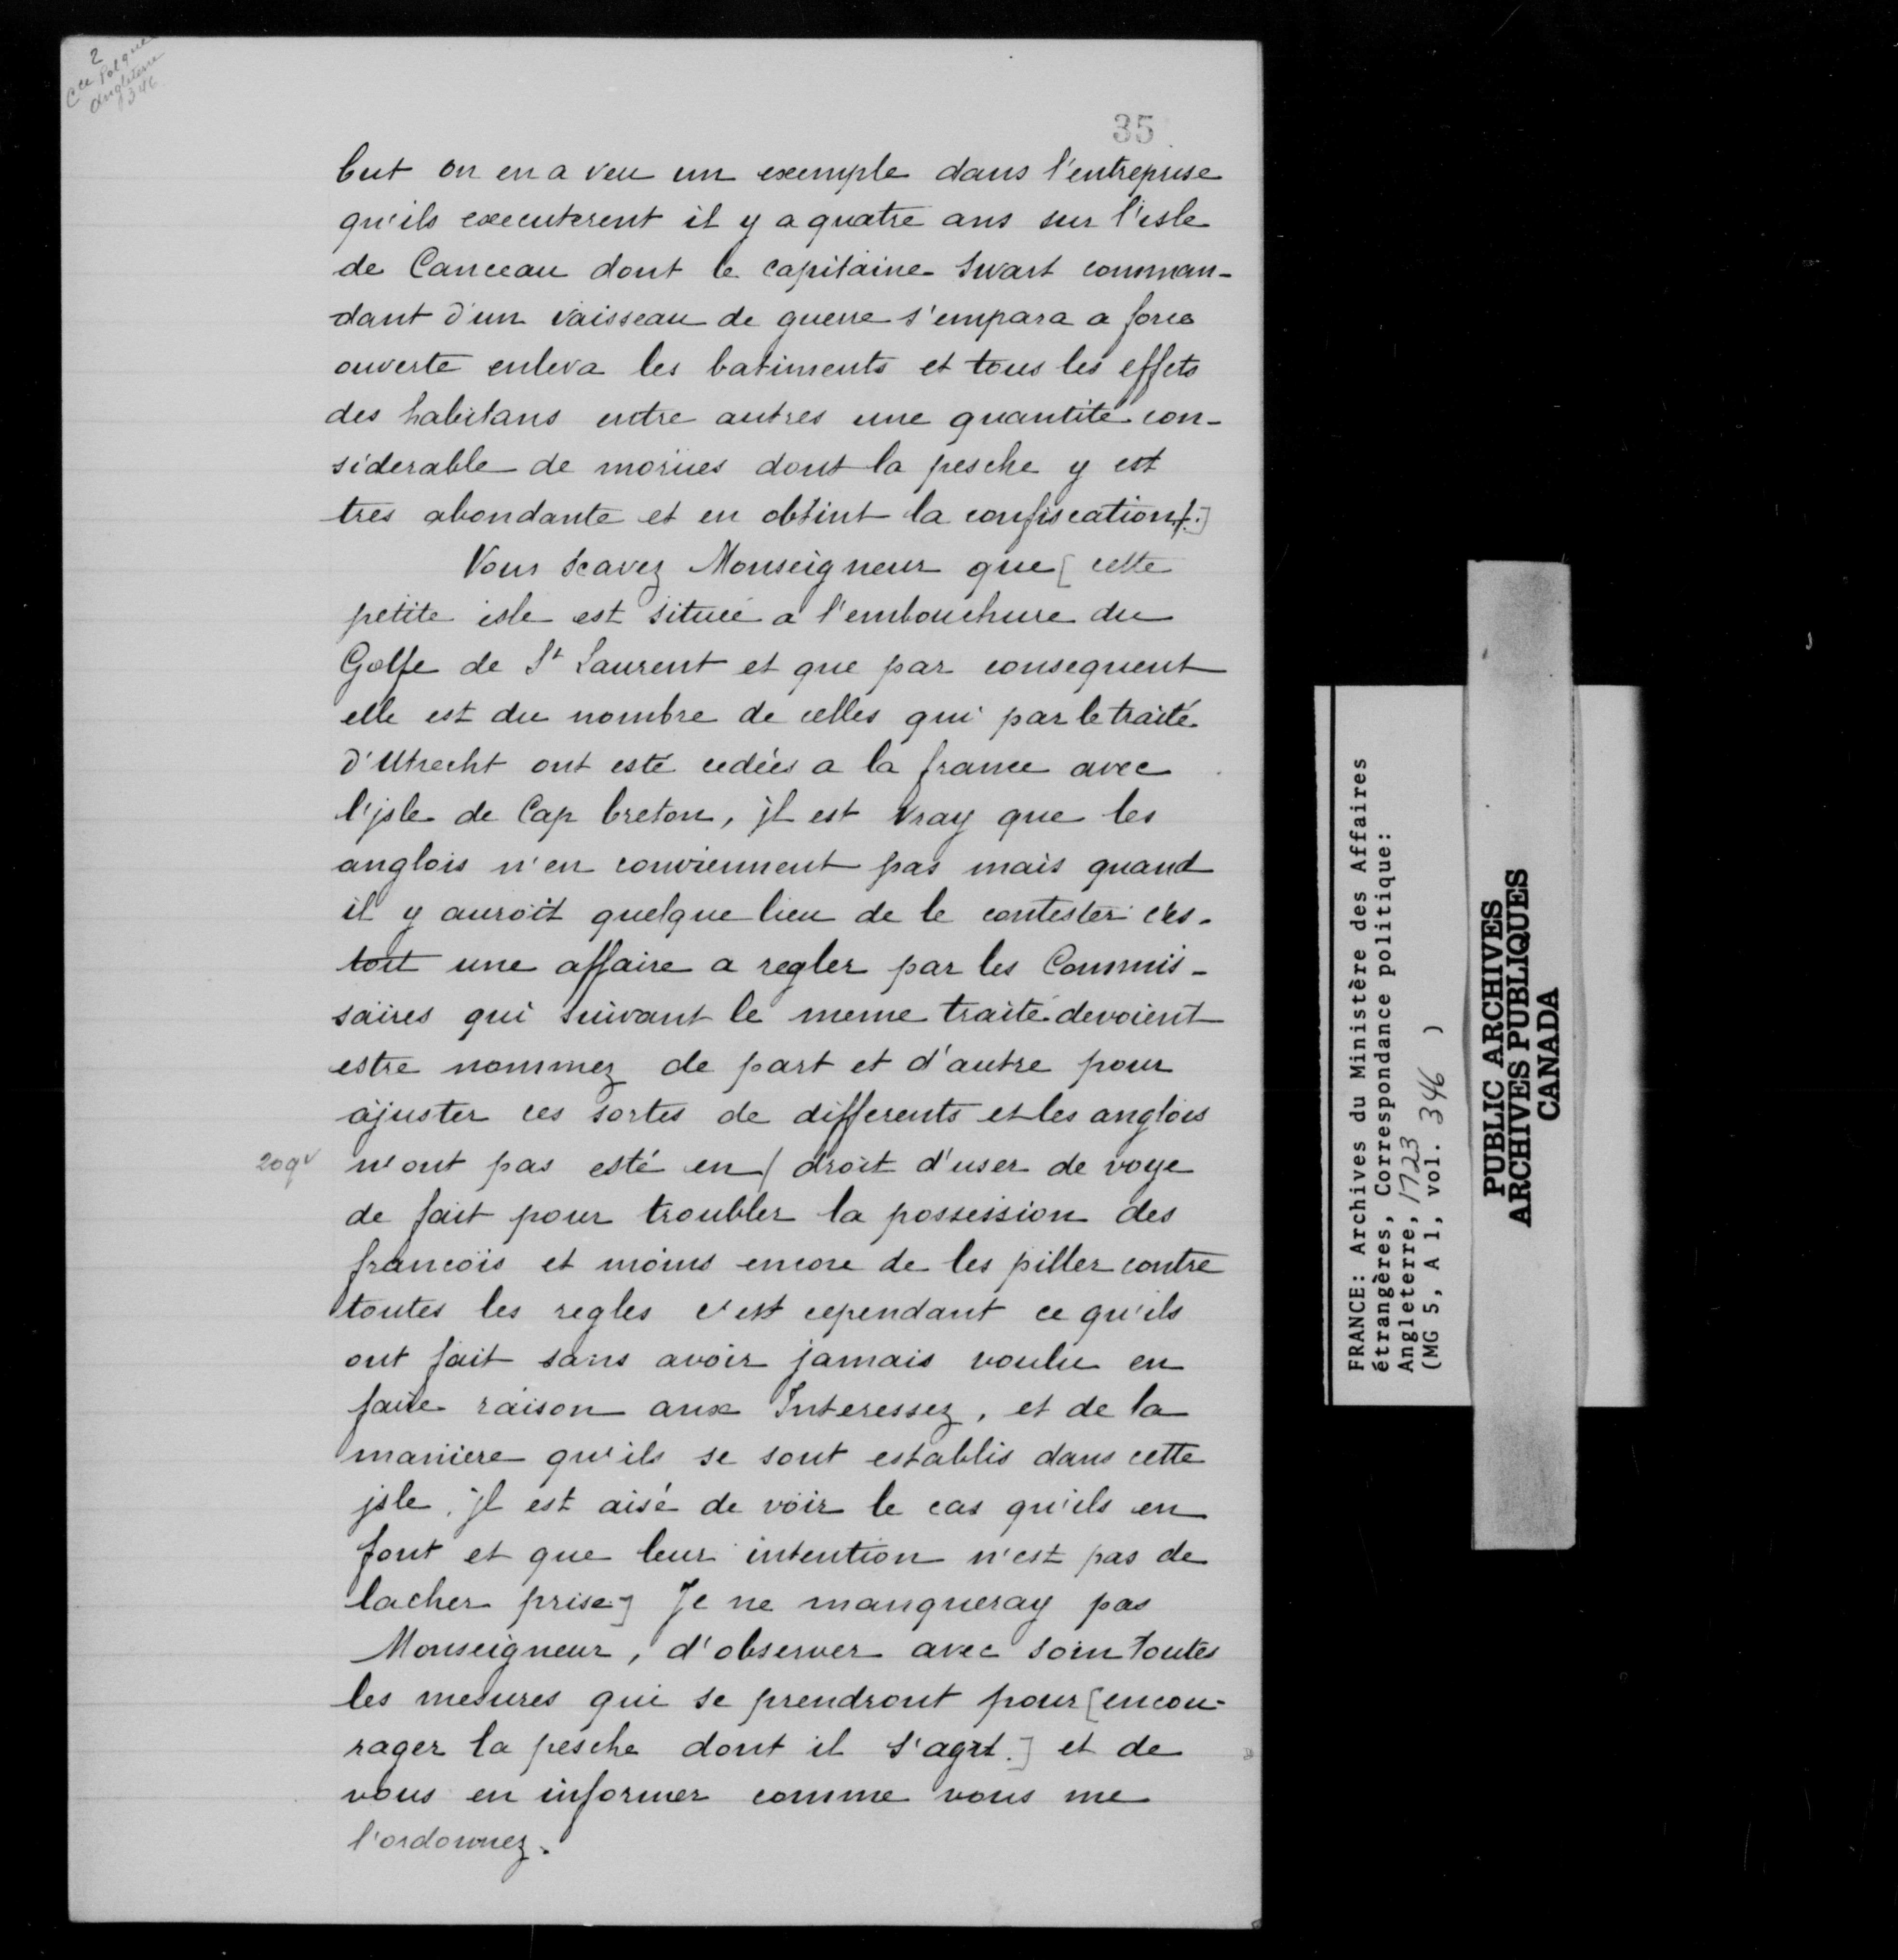 2
Cce Polque
Angleterre
346
35
but on en a veu un exemple dans l'entreprise
qu'ils executerent il y a quatre ans sur l'isle
de Canceau dont le capitaine Swart comman-
dant d'un vaisseau de guerre s'empara a force
ouverte enleva les batiments et tous les effets
des habitans entre autres une quantité con-
siderable de moriies dont la pesche y est
tres abondante et en obtint la confiscation.]
Vous scavez Monseigneur que [cette
petite isle est située a l'embouchure du
Golfe de St Laurent et que par consequent
elle est du nombre de celles qui par le traité
d'Utrecht ont esté cedées a la france avec
l'jsle de Cap breton, jl est vray que les
anglois n'en conviennent pas mais quand
il y auroit quelque lieu de le contester c'es-
toit une affaire a regler par les Commis-
saires qui suivant le meme traité devoient
estre nommez de part et d'autre pour
ajuster ces sortes de differents et les anglois
209v n'ont pas esté en/ droit d'user de voye
de fait pour troubler la possession des
francois et moins encore de les piller contre
toutes les regles c'est cependant ce qu'ils
ont fait sans avoir jamais voulu en
faire raison aux Interessez, et de la
maniere qu'ils se sont establis dans cette
jsle, jl est aisé de voir le cas qu'ils en
font et que leur intention n'est pas de
lacher prise] Je ne manqueray pas
Monseigneur, d'observer avec soin toutes
les mesures qui se prendront pour [encou-
rager la pesche dont il s'agit.] et de
vous en informer comme vous me
l'ordonnez.
FRANCE: Archives du Ministère des Affaires
étrangères, Correspondance politique:
Angleterre, 1723
(MG 5, A 1, vol. 346 )
PUBLIC ARCHIVES
ARCHIVES PUBLIQUES
CANADA